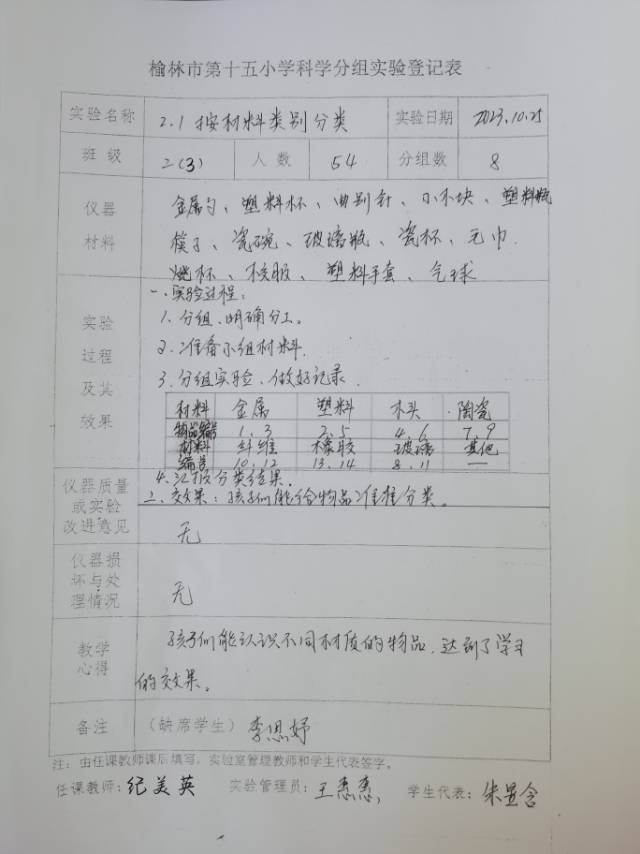 榆林市第十五小学科学分组实验登记表
实验名称 2.1 按材料类别分类 实验日期 2023.10.25
班级 二(3) 人数 54 分组数 8
仪器材料 金属勺、塑料杯、曲别针、小木块、塑料瓶
筷子、瓷碗、玻璃瓶、瓷杯、毛巾
烧杯、校服、塑料手套、气球
实验过程及其效果 一、实验过程:
1. 分组、明确分工。
2. 准备小组材料.
3. 分组实验、做好记录.
材料 金属 塑料 木头 陶瓷
物品编号 1、3 2、5 4、6 7、9
材料 纤维 橡胶 玻璃 其他
编号 10、12 13、14 8、11 —
4. 汇报分类结果.
二、效果:孩子们能给物品准确分类。
仪器质量或实验改进意见 无
仪器损坏与处理情况 无
教学心得 孩子们能认识不同材质的物品,达到了学习
的效果。
备注 (缺席学生) 李思妤
注:由任课教师课后填写,实验室管理教师和学生代表签字。
任课教师:纪美英 实验管理员:王惠惠, 学生代表:朱昱含